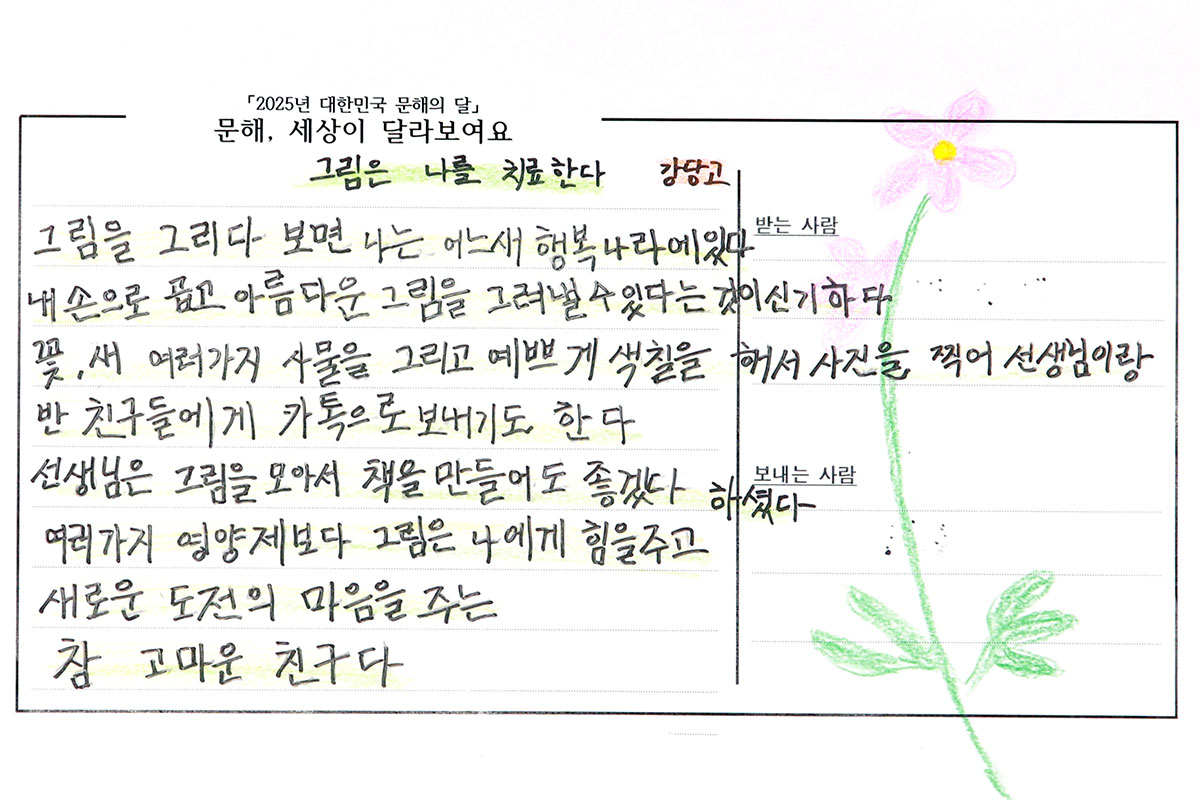 「2025년 대한민국 문해의 달」
문해, 세상이 달라보여요
그림은 나를 치료한다 강당고
그림을 그리다 보면 나는 어느새 행복나라에있다
내 손으로 곱고 아름다운 그림을 그려낼수있다는 것이신기하다
꽃, 새 여러가지 사물을 그리고 예쁘게 색칠을 해서 사진을 찍어 선생님이랑
반 친구들에게 카톡으로보내기도 한다
선생님은 그림을모아서 책을만들어도 좋겠다 하셨다
여러가지 영양제보다 그림은 나에게 힘을주고
새로운 도전의 마음을 주는
참 고마운 친구다
받는 사람
보내는 사람